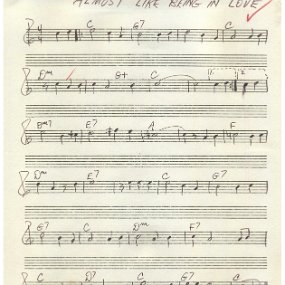 ALMOST LIKE BEING IN LOVE
C G7 C
Dm G+ C 1. 2.
Bm7 E7 A F
Dm E7 C G
G7 C Dm F7
C D7 C G7 C